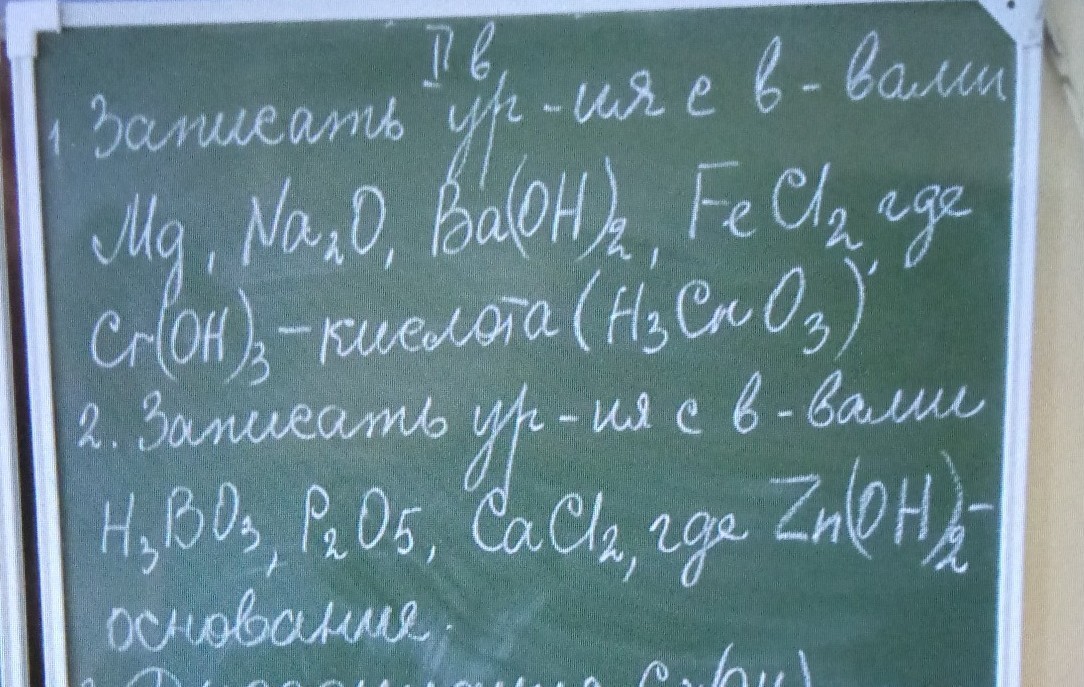 II в
1. Записать ур-ия с в-вами
Mg, Na₂O, Ba(OH)₂, FeCl₂, где
Cr(OH)₃ – кислота (H₃CrO₃)
2. Записать ур-ия с в-вами
H₃BO₃, P₂O₅, CaCl₂, где Zn(OH)₂ –
основание.